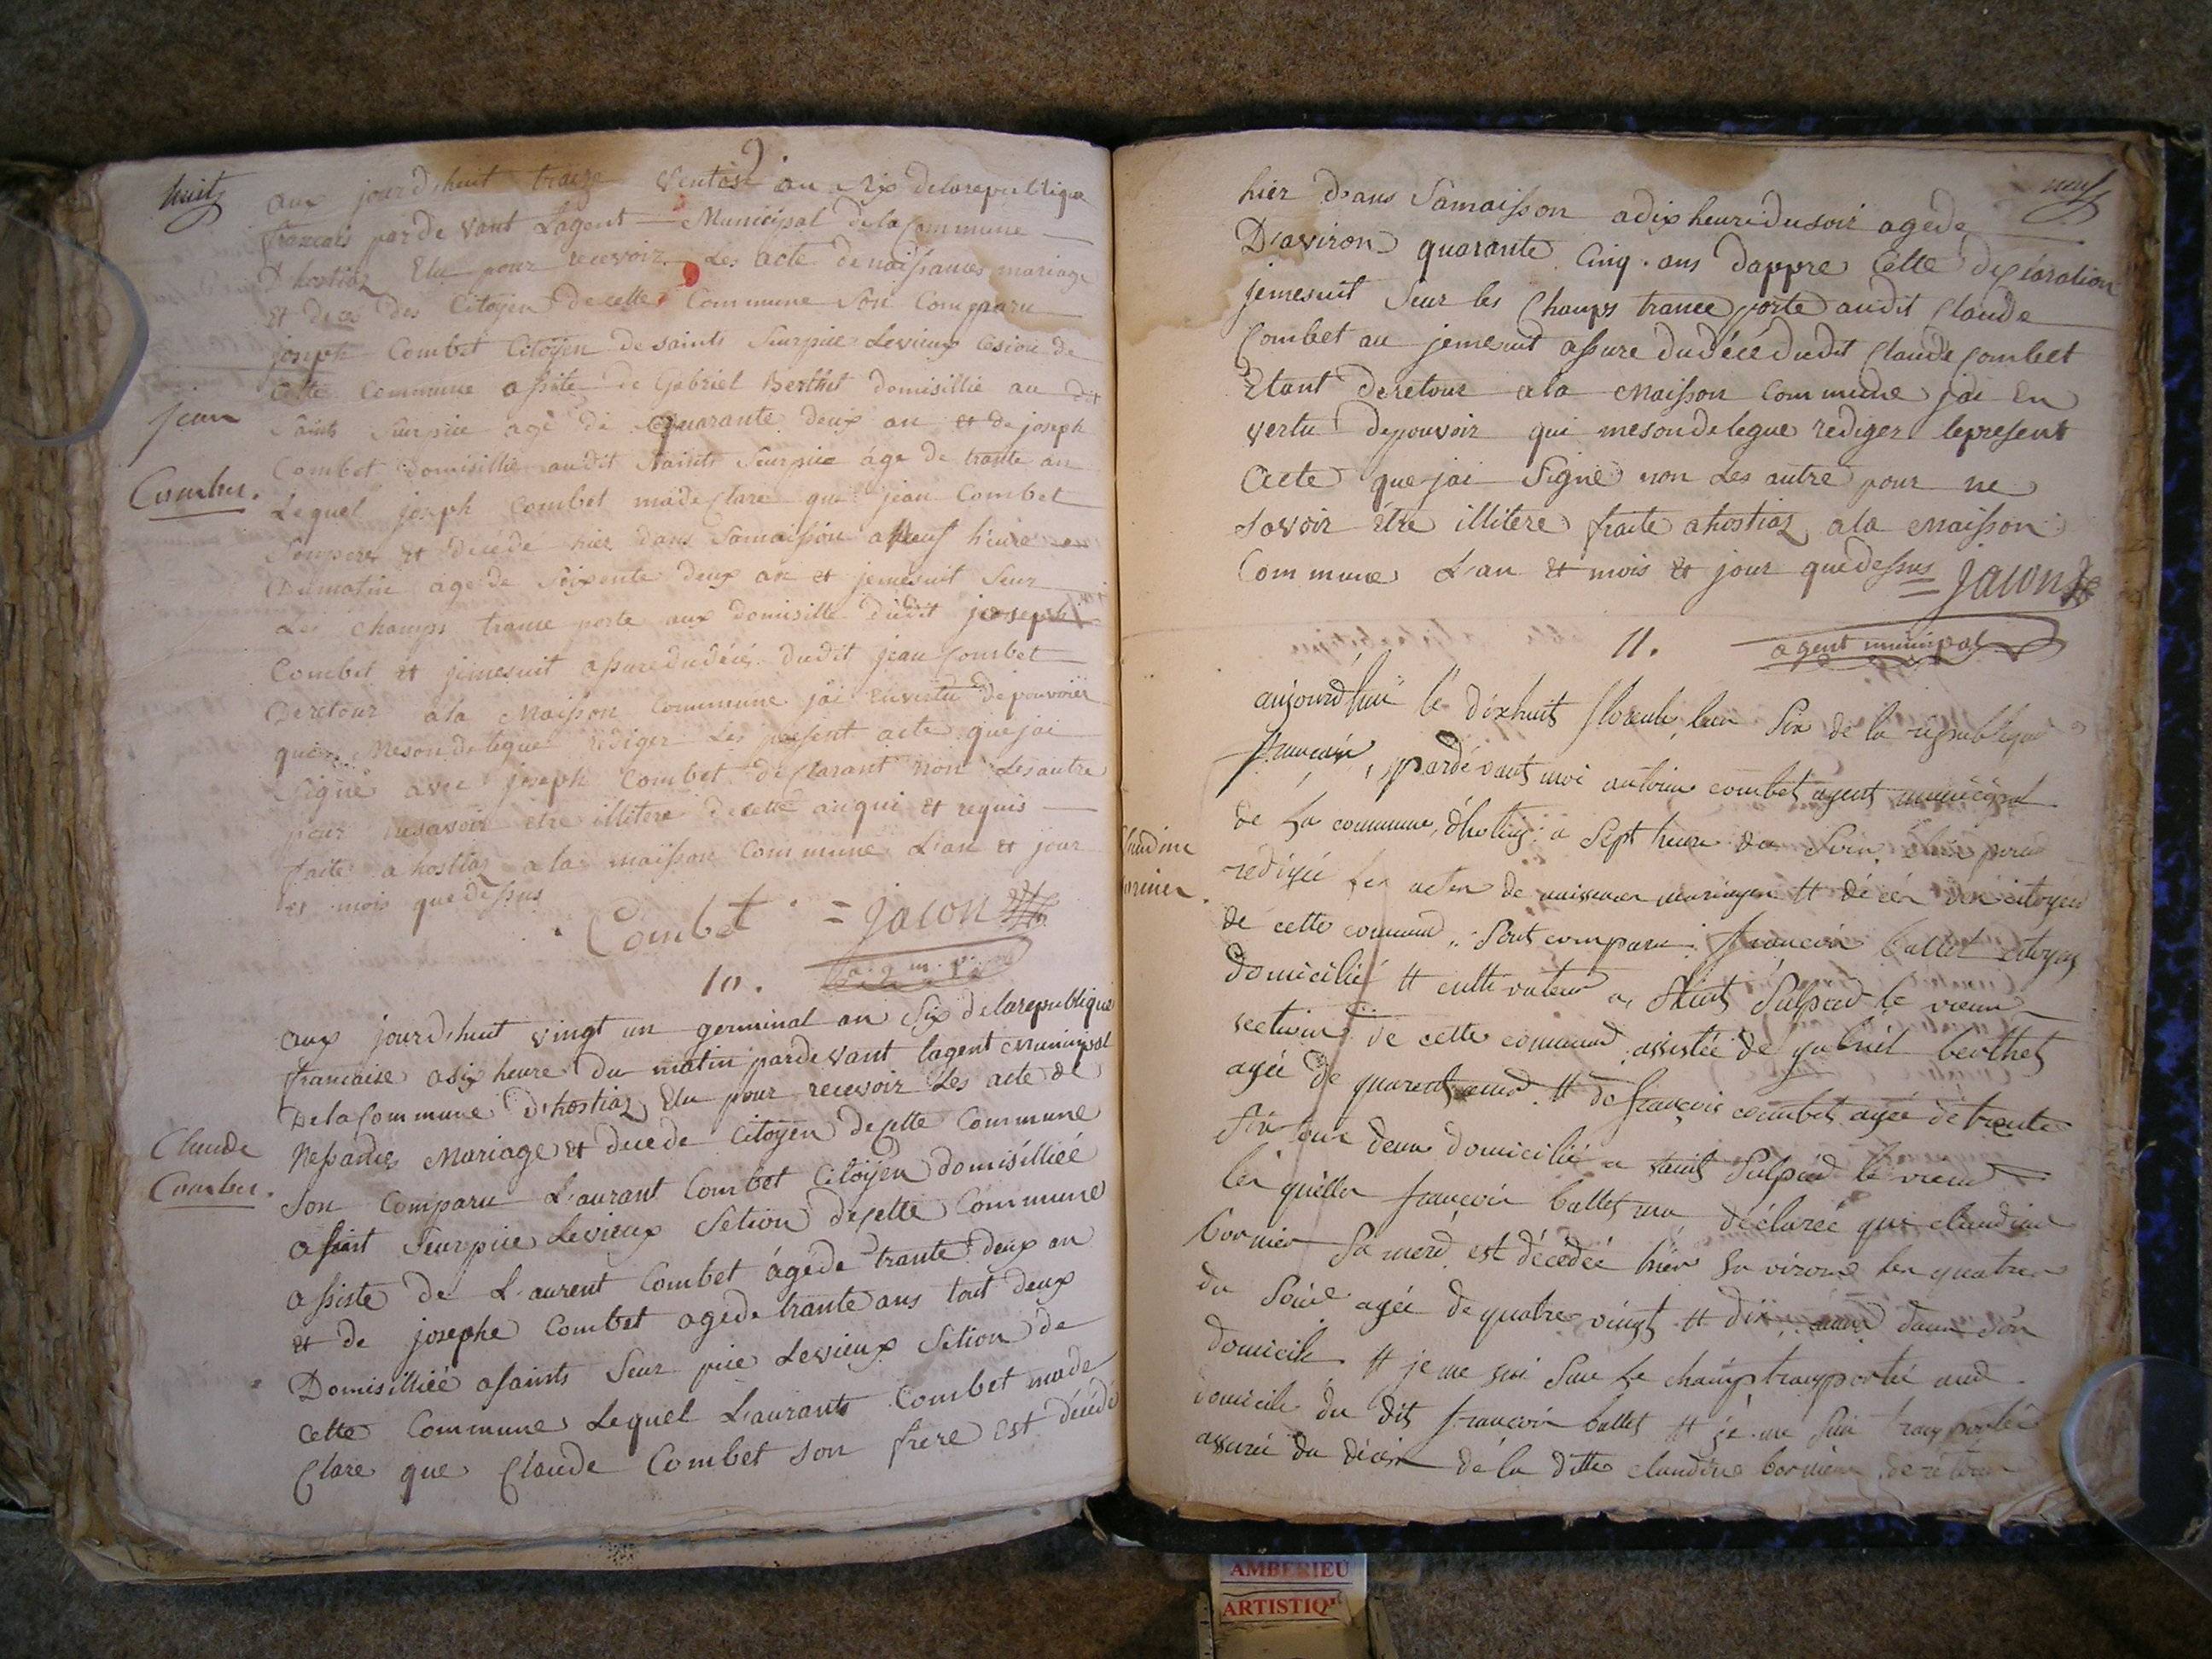 huitz
9.
aux jourd,huit traize Ventose an a six delarepublique
francais parde vant Lagent Municipal dela Commune
D hostiaz Elu pour recevoir Les acte denaissances mariage
Et deces des Citoyen decette Commune Son Comparu
joseph Combet Citoyen desaints Seurpice Levieux Cesion de
Cette Commune assite de Gabriel Berthet domisillié au dit
Saints Seurpice agé de quarante deux an et de joseph
Combet domisillie audit Saints Seurpice áge de trante an
Lequel joseph Combet madeClare que jean Combet
Sonpere et Décédé hier dans Samaission aneuf heure
Dumatin agede Soixente deux an et jemesuit Seur
Les champs trance porte aux domisille dudit joseph
Combet et jemesuit assuredudécés dudit jean Combet
Deretour ala Maisson commeune jai envertu depouvoier
qui Meson delegue rédiger Les present acte que jai
Signé avec joseph Combet deClarant non Lesautre
pour nesavoir etre illitere decette anqui et requis
faite a hostiaz ala maisson Commune L'an et jour
et mois quedessus
jean
Combet.
Combet = jacon
a g m
10.
aux jourd,huit vingt un germinal an Six delarepublique
francaise asix heure du matin pardevant lagent Municipal
Dela Commune d'hostiaz Elu pour recevoir Les acte de
Nessances Mariage et decede Citoyen decette Commune
Son Comparu L'aurant Combet Citoÿen domisílliéé
asaint Seurpice Levieux Setion decette Commune
assiste de L'aurent Combet ágéde trante deux an
et de josephe Combet agede trante ans tout deux
Domisilliéé asaints Seur pice Levieux Setion de
Cette Commune Lequel L'aurants Combet made
Clare que Claude Combet son frere est décédé
Claude
Combet.
neuf
hier dans Samaisson adix heure dusoir agéde
D'aviron quarante Cinq ans dappre Cette deClaration
jemesuit Seur les Champs trance porte audit Claude
Combet au jemesuit assure dudécé dudit Claude Combet
Étant deretour ala Maisson Commune jai en
vertu depouvoir qui mesondelegue rediger lepresent
acte que jai Signé non Les autre pour ne
Savoir étre illitere fraite ahostiaz ala Maisson
Commune L'an et mois et jour quedessus = jacon
agent municipal
11.
aujourdhui le dixhuit floreale lan Six de la republique
francaise, pardevant moi antoine combet agent municipal
de la commune d'hotiaz a Sept heure du Soir élu pour
redigée les actes de naissance mariage et décés des citoyen
de cette commune Sont comparu francois ballet citoyen
domicilié et cultivateur a Saint Sulpice le vieux
section de cette commune assistée de gabriel berthet
agée de quarente et de françois combet agée de trente
Six tous deux domicilié a Saint Sulpice le vieux
les quelles françois ballet ma déclarée que claudine
bornier Sa mere est décédée hier en viron les quatres
du Soire agée de quatre vingt et dix dans Son
domicile et je me sui Sur le champ transportée aud
domicile du dit françois ballet et je me Suis transportée
assurée du décès de la ditte claudine bornier de retour
Claudine
bornier.
AMBERIEU
ARTISTIQ